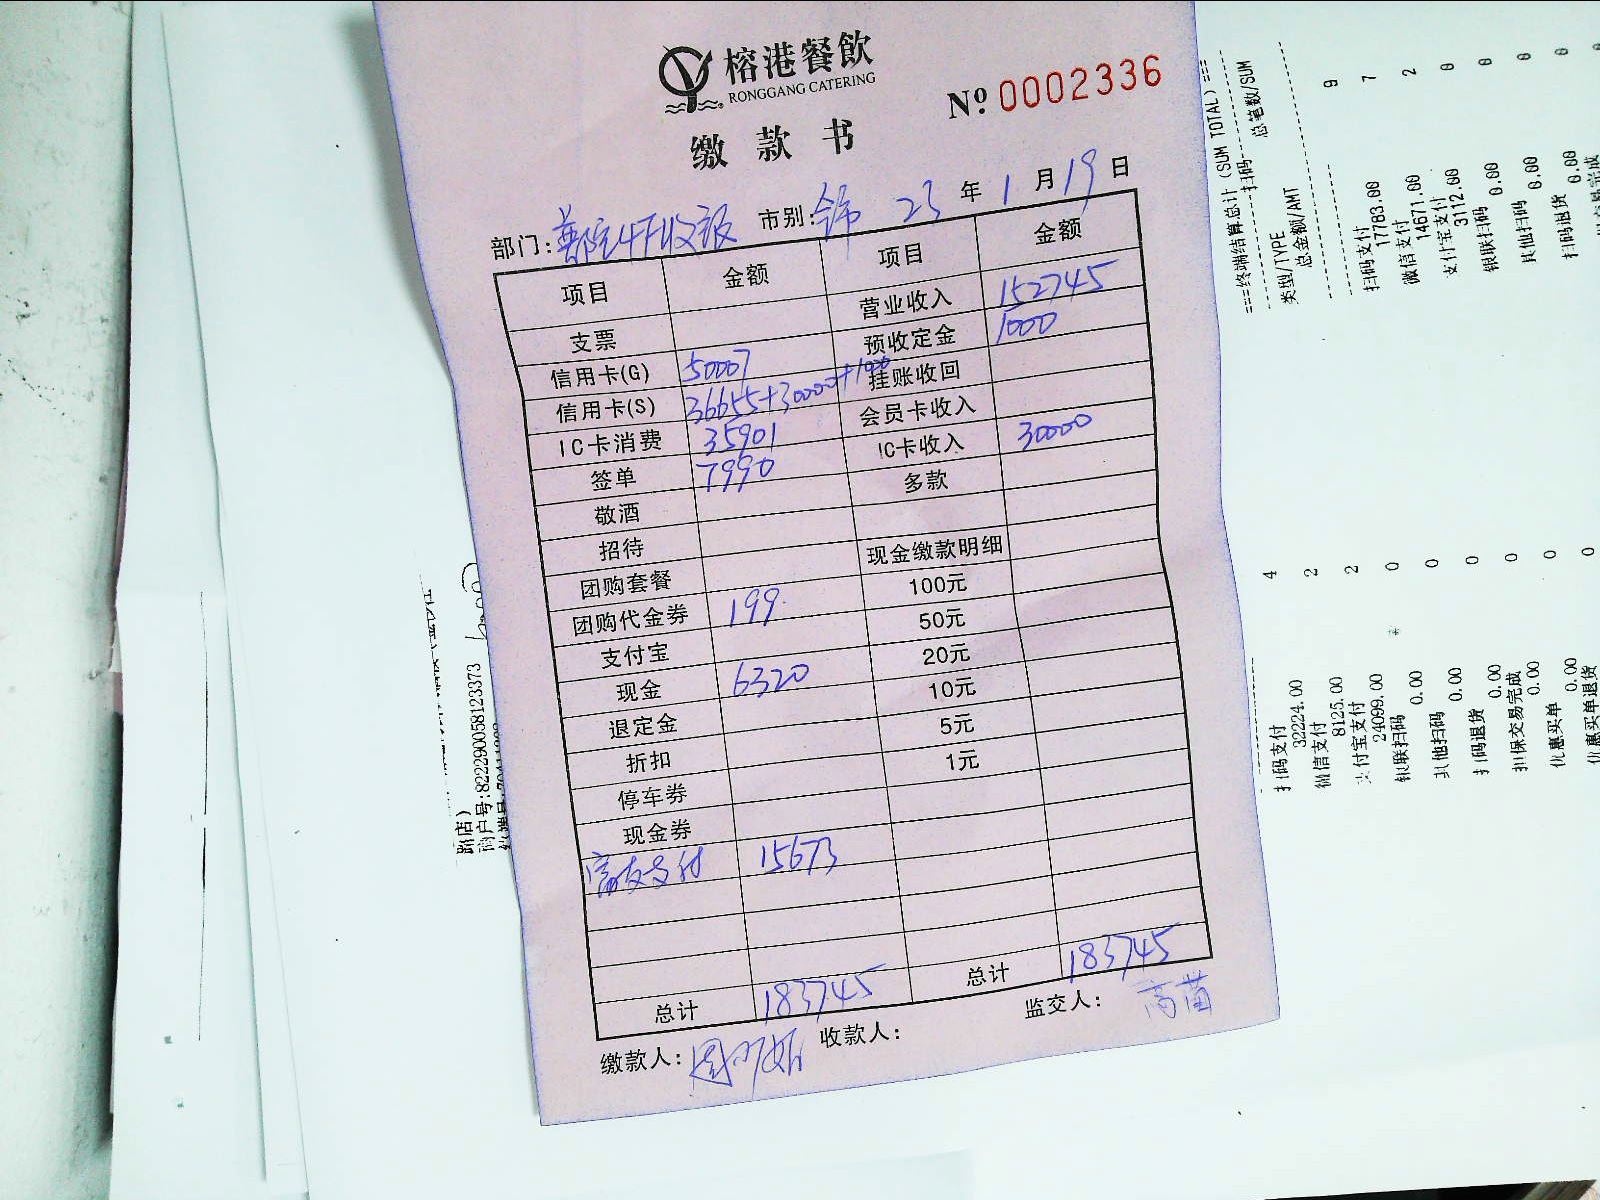 榕港餐飲
RONGGANG CATERING
№ 0002336
缴款书
部门: 市别: 23 年 1 月 19 日
项目 金额 项目 金额
营业收入 152745
支票 预收定金 1000
信用卡(G) 50007 挂账收回
信用卡(S) 36655+30000+1000 会员卡收入
IC卡消费 35901 IC卡收入 30000
签单 7990 多款
敬酒
招待 现金缴款明细
团购套餐 100元
团购代金券 199 50元
支付宝 20元
现金 6320 10元
退定金 5元
折扣 1元
停车券
现金券
支付 15673
总计 183745 总计 183745
缴款人: 收款人: 监交人: 高苗
===终端结算总计(SUM TOTAL)===
扫码
类型/TYPE 总笔数/SUM
总金额/AMT
9
扫码支付 7
17783.00
微信支付 2
14671.00
支付宝支付 0
3112.00
银联扫码 0
0.00
其他扫码 0
0.00
扫码退货 0
0.00
扫码支付 4
32224.00
微信支付 2
8125.00
支付宝支付 2
24099.00
银联扫码 0
0.00
其他扫码 0
0.00
扫码退货 0
0.00
担保交易完成 0
0.00
优惠买单 0
0.00
优惠买单退货 0
路店)
商户号:822290058123373